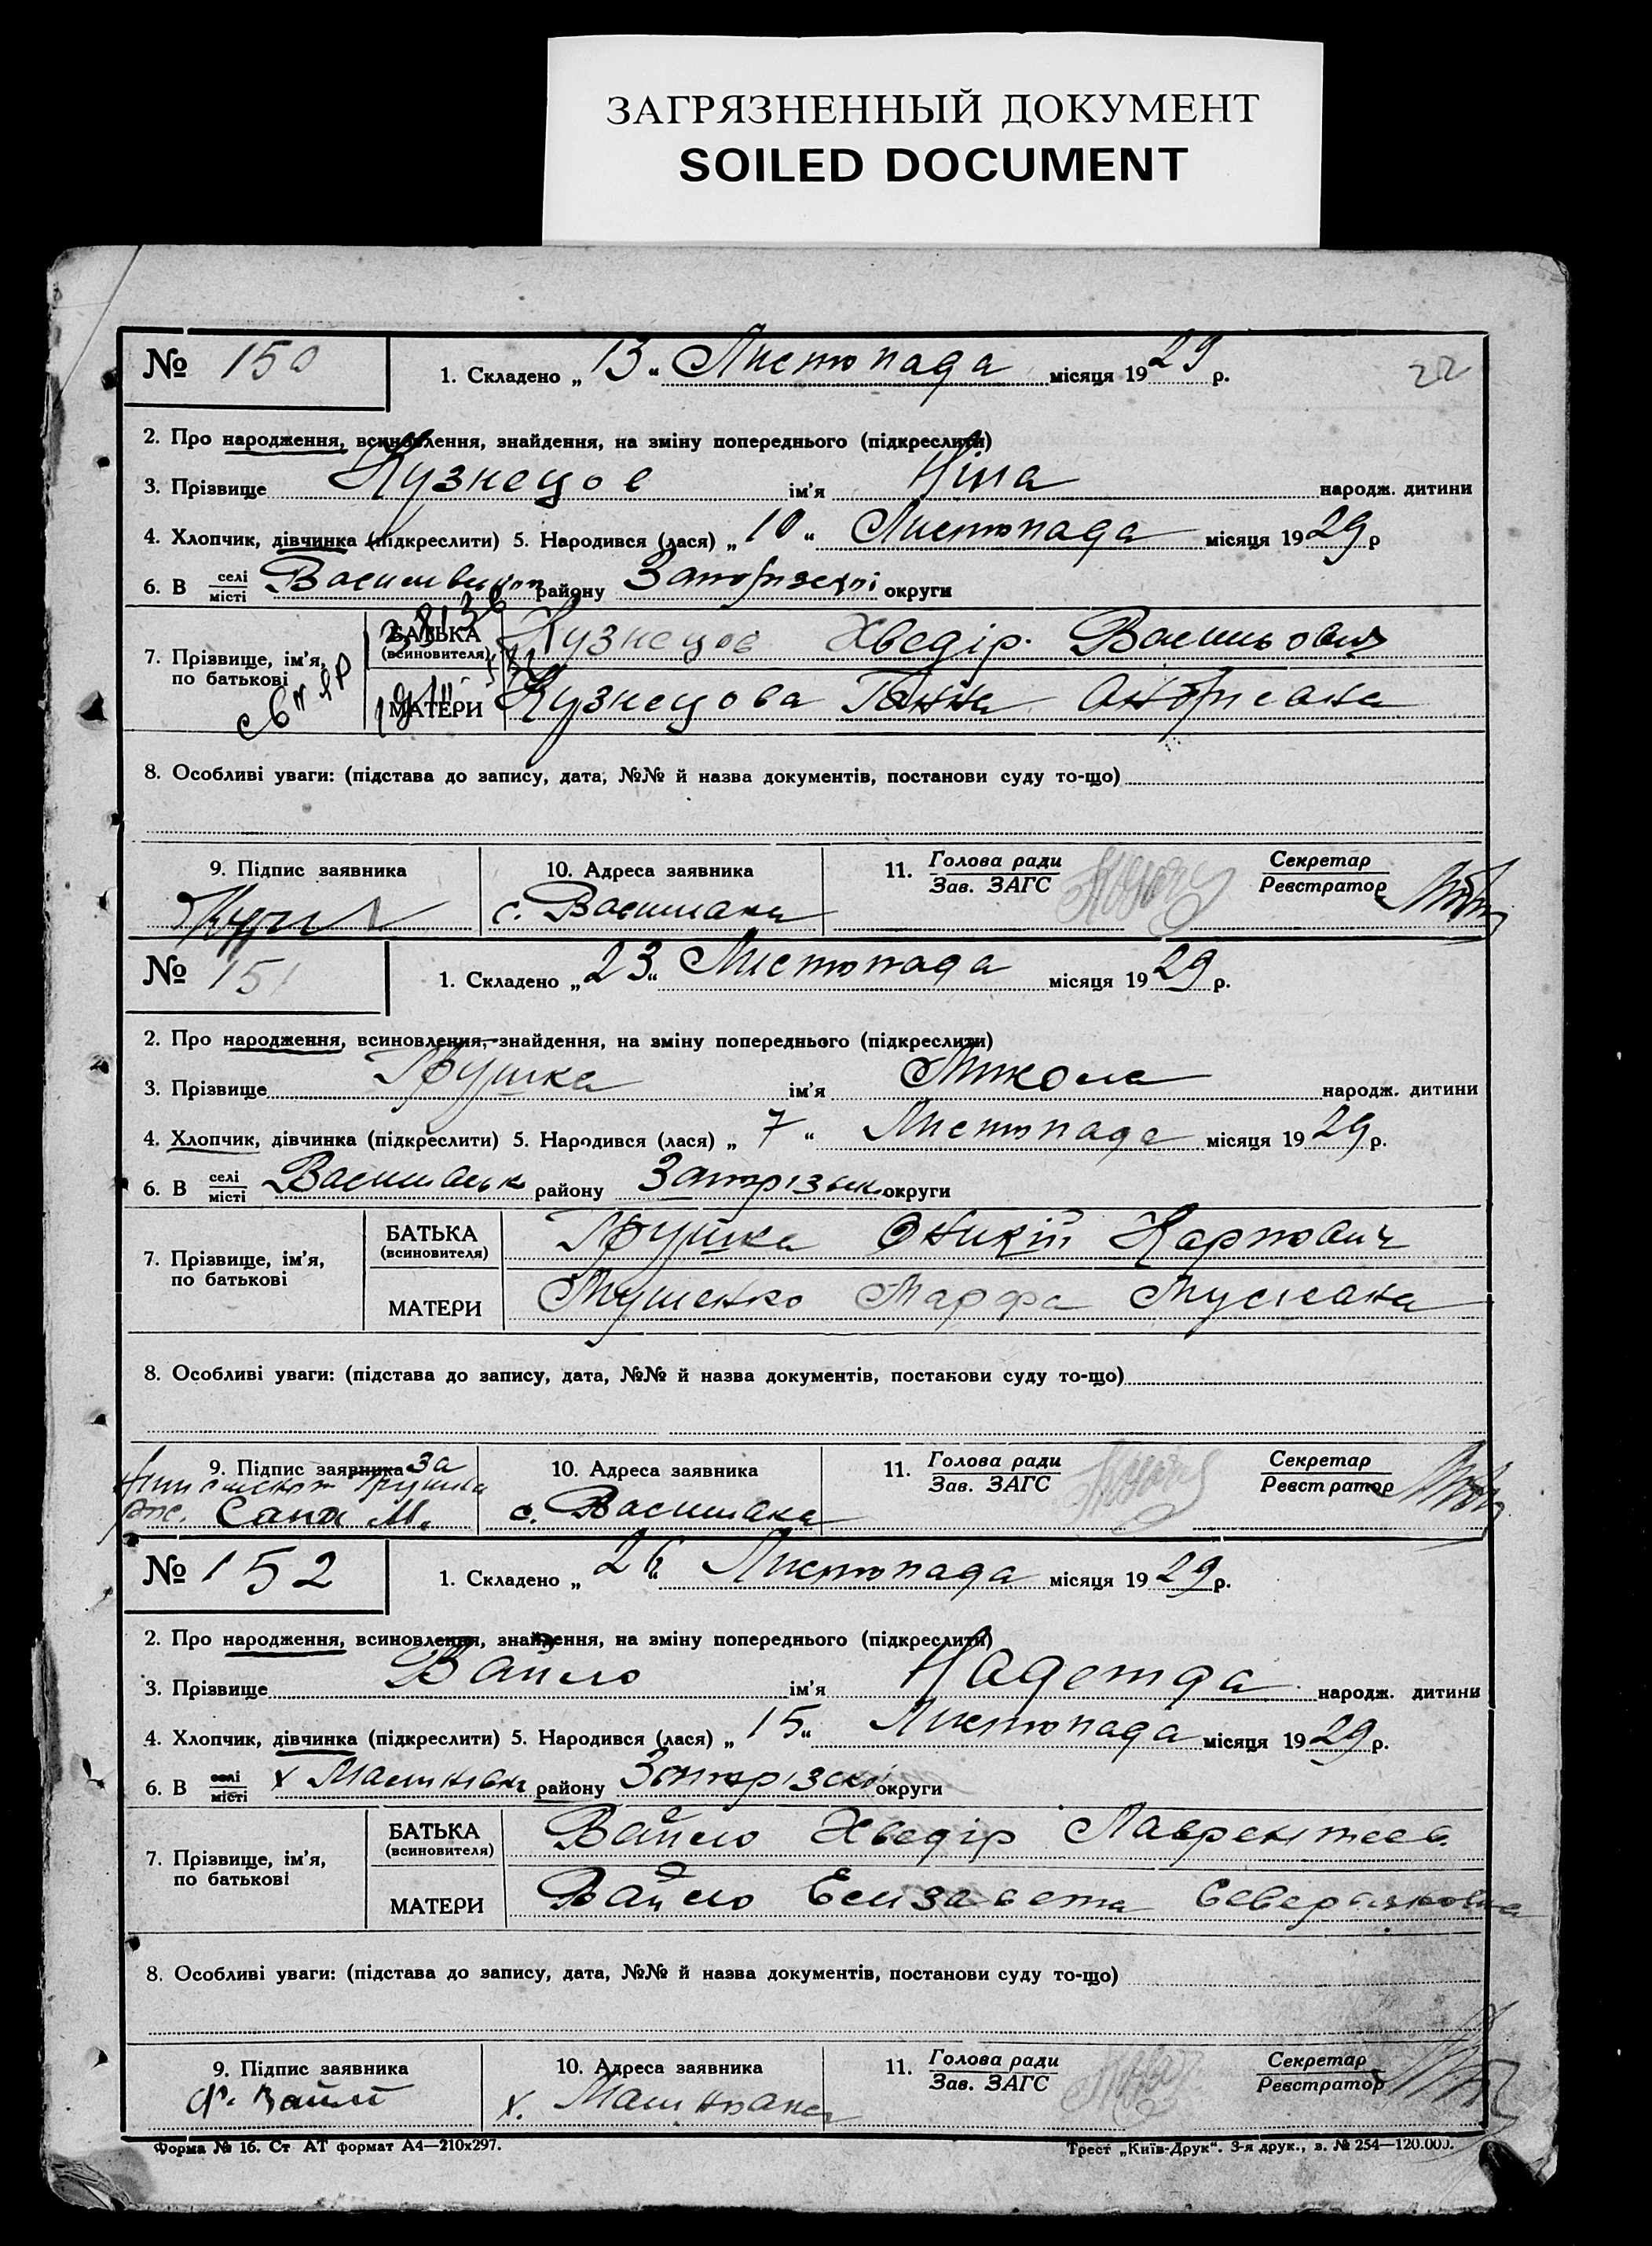 ЗАГРЯЗНЕННЫЙ ДОКУМЕНТ
SOILED DOCUMENT
№ 150 1. Складено „13“ Листопада місяця 1929 р. 22
2. Про народження, всиновлення, знайдення, на зміну попереднього (підкреслити)
3. Прізвище Кузнецов ім'я Ніна народж. дитини
4. Хлопчик, дівчинка (підкреслити) 5. Народився (лася) „10“ Листопада місяця 1929 р
6. В селі місті району округи
7. Прізвище, ім'я, по батькові
БАТЬКА (всиновителя) Кузнецов Хведір Васильович
МАТЕРИ Кузнецова Ганна
8. Особливі уваги: (підстава до запису, дата, №№ й назва документів, постанови суду то-що)
9. Підпис заявника 10. Адреса заявника 11. Голова ради Зав. ЗАГС Секретар Реєстратор
с. Василівка
№ 151 1. Складено „23“ Листопада місяця 1929 р.
2. Про народження, всиновлення, знайдення, на зміну попереднього (підкреслити)
3. Прізвище Грушка ім'я Микола народж. дитини
4. Хлопчик, дівчинка (підкреслити) 5. Народився (лася) „7“ Листопада місяця 1929 р.
6. В селі місті району Запорізьк. округи
7. Прізвище, ім'я, по батькові
БАТЬКА (всиновителя) Грушка Оникій Карпович
МАТЕРИ Марфа
8. Особливі уваги: (підстава до запису, дата, №№ й назва документів, постанови суду то-що)
9. Підпис заявника за 10. Адреса заявника 11. Голова ради Зав. ЗАГС Секретар Реєстратор
Грушка
с. Василівка
№ 152 1. Складено „26“ Листопада місяця 1929 р.
2. Про народження, всиновлення, знайдення, на зміну попереднього (підкреслити)
3. Прізвище Вайло ім'я Надежда народж. дитини
4. Хлопчик, дівчинка (підкреслити) 5. Народився (лася) „15“ Листопада місяця 1929 р.
6. В селі місті х району округи
7. Прізвище, ім'я, по батькові
БАТЬКА (всиновителя) Вайло Хведір Лаврентьев.
МАТЕРИ Вайло Елизавета
8. Особливі уваги: (підстава до запису, дата, №№ й назва документів, постанови суду то-що)
9. Підпис заявника 10. Адреса заявника 11. Голова ради Зав. ЗАГС Секретар Реєстратор
Ф. Вайло х.
Форма № 16. Ст АТ формат А4—210х297. Трест „Київ-Друк“. 3-я друк., в. № 254—120.000.